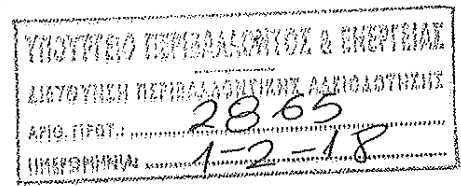 ΥΠΟΥΡΓΕΙΟ ΠΕΡΙΒΑΛΛΟΝΤΟΣ & ΕΝΕΡΓΕΙΑΣ
ΔΙΕΥΘΥΝΣΗ ΠΕΡΙΒΑΛΛΟΝΤΙΚΗΣ ΑΔΕΙΟΔΟΤΗΣΗΣ
ΑΡΙΘ. ΠΡΩΤ.: 2865
ΗΜΕΡΟΜΗΝΙΑ: 1-2-18